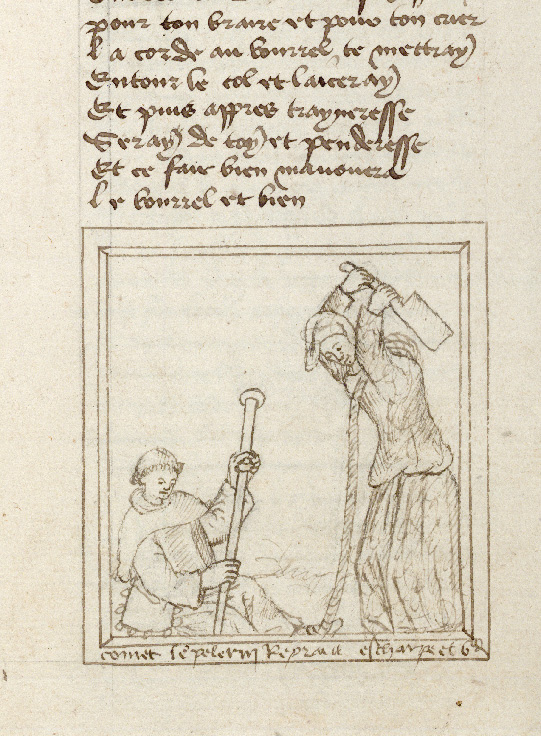 pour ton braire et pour ton crier
La corde au bourrel te mettray
Entour le col et laceray
Et puis apres trayneresse
Seray de toy et penderesse
Et ce faire bien
Le bourrel et bien
coment le pelerin escharpe et